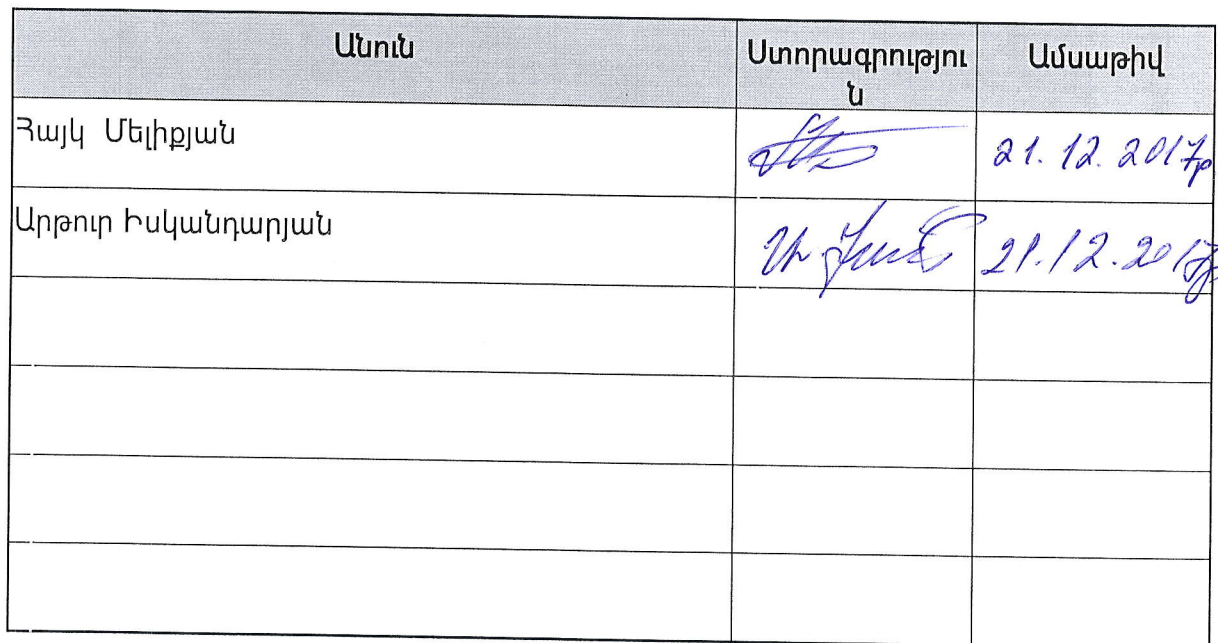 Անուն
Ստորագրությու
ն
Ամսաթիվ
Հայկ Մելիքյան
21.12.2017թ
Արթուր Իսկանդարյան
21.12.2017թ